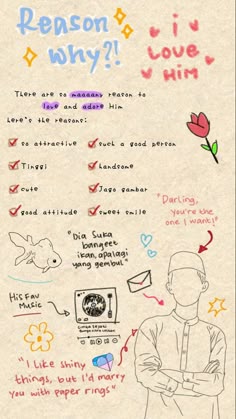 Reason
why?!
i
Love
Him
There are so maaaany reason to
love and adore Him
here's the reasons:
so attractive
such a good person
Tinggi
handsome
cute
Jago gambar
good attitude
sweet smile
"Darling,
You're the
one I want!"
"Dia Suka
bangeet
ikan, apalagi
yang gembul"
His Fav
Music
"I like shiny
things, but I'd marry
you with paper rings"